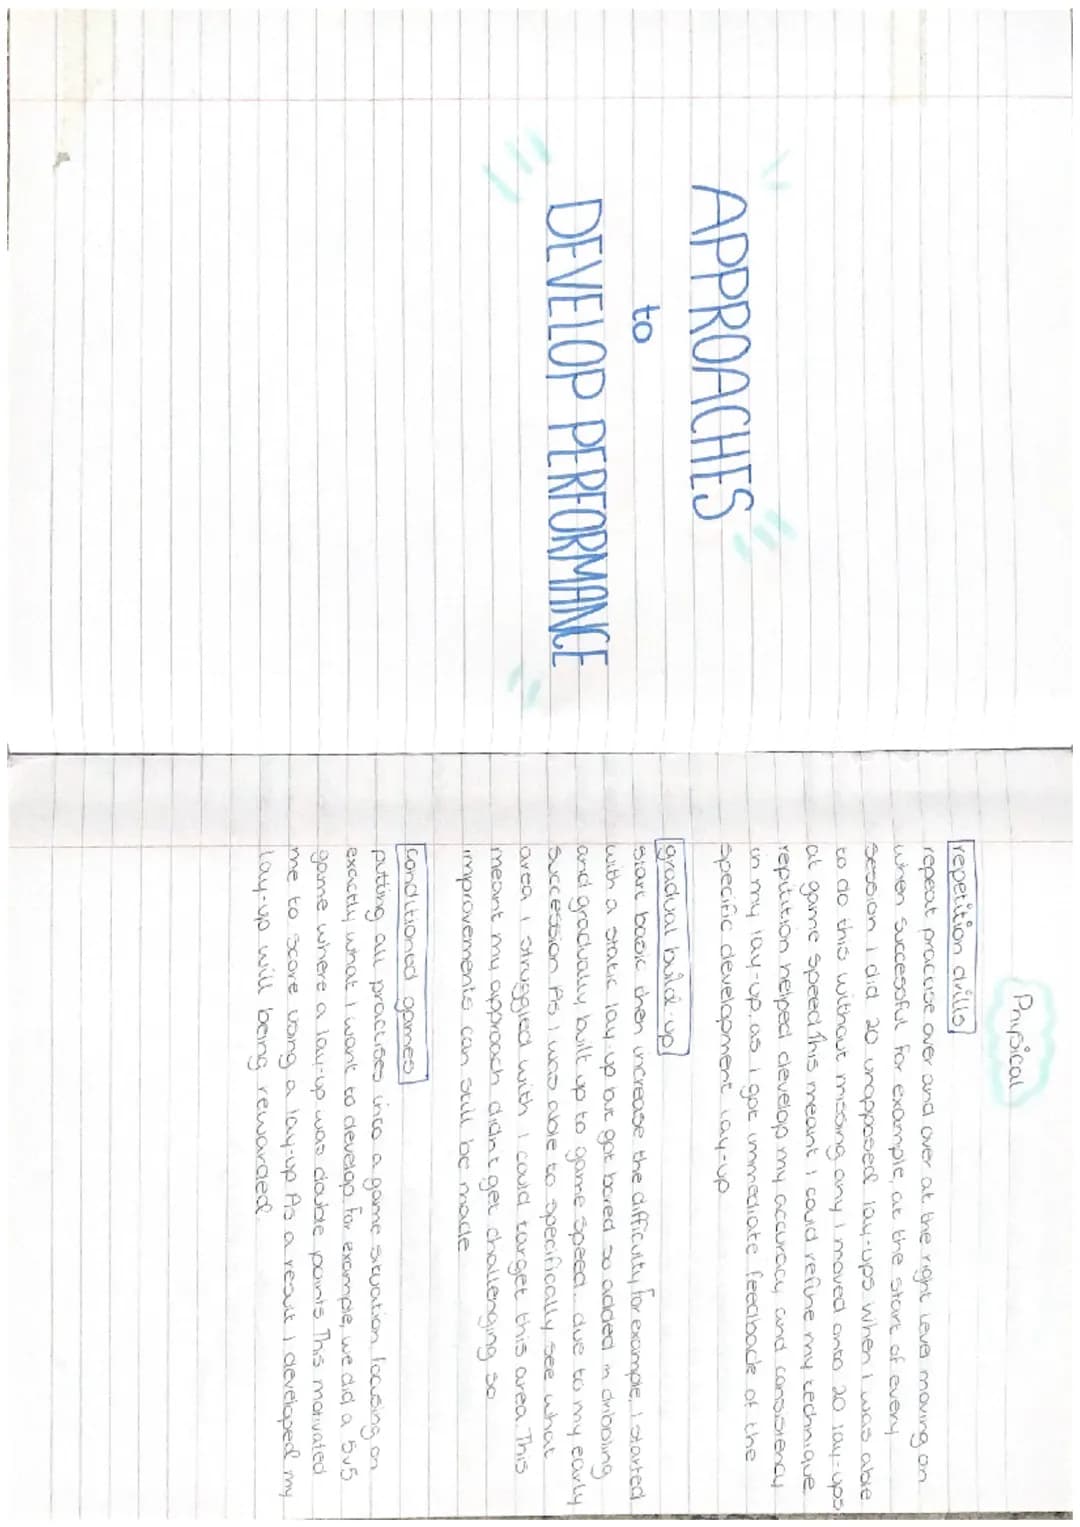 APPROACHES
to
DEVELOP PERFORMANCE
Physical
repetition drills
repeat practise over and over at the right level moving on
when successful for example, at the start of every
session i did 20 unopposed lay-ups when I was able
to do this without missing any I moved onto 20 lay-ups
at game speed This meant I could refine my technique
repitition helped develop my accuracy and consistency
in my lay-up as I got immediate feedback of the
specific development lay-up
gradual build-up
Start basic then increase the difficulty for example, I started
with a static lay up but got bored so added in dribbling
and gradually built up to game speed.. due to my early
succession As I was able to specifically see what
area i struggled with I could target this area This
meant my approach didn't get challenging so
improvements can still be made
conditioned games
putting all practises into a game situation focusing on
exactly what I want to develop for example, we did a 5v5
game where a lay-up was double points This motivated
me to score using a lay-up As a result I developed my
lay-up will being rewarded.